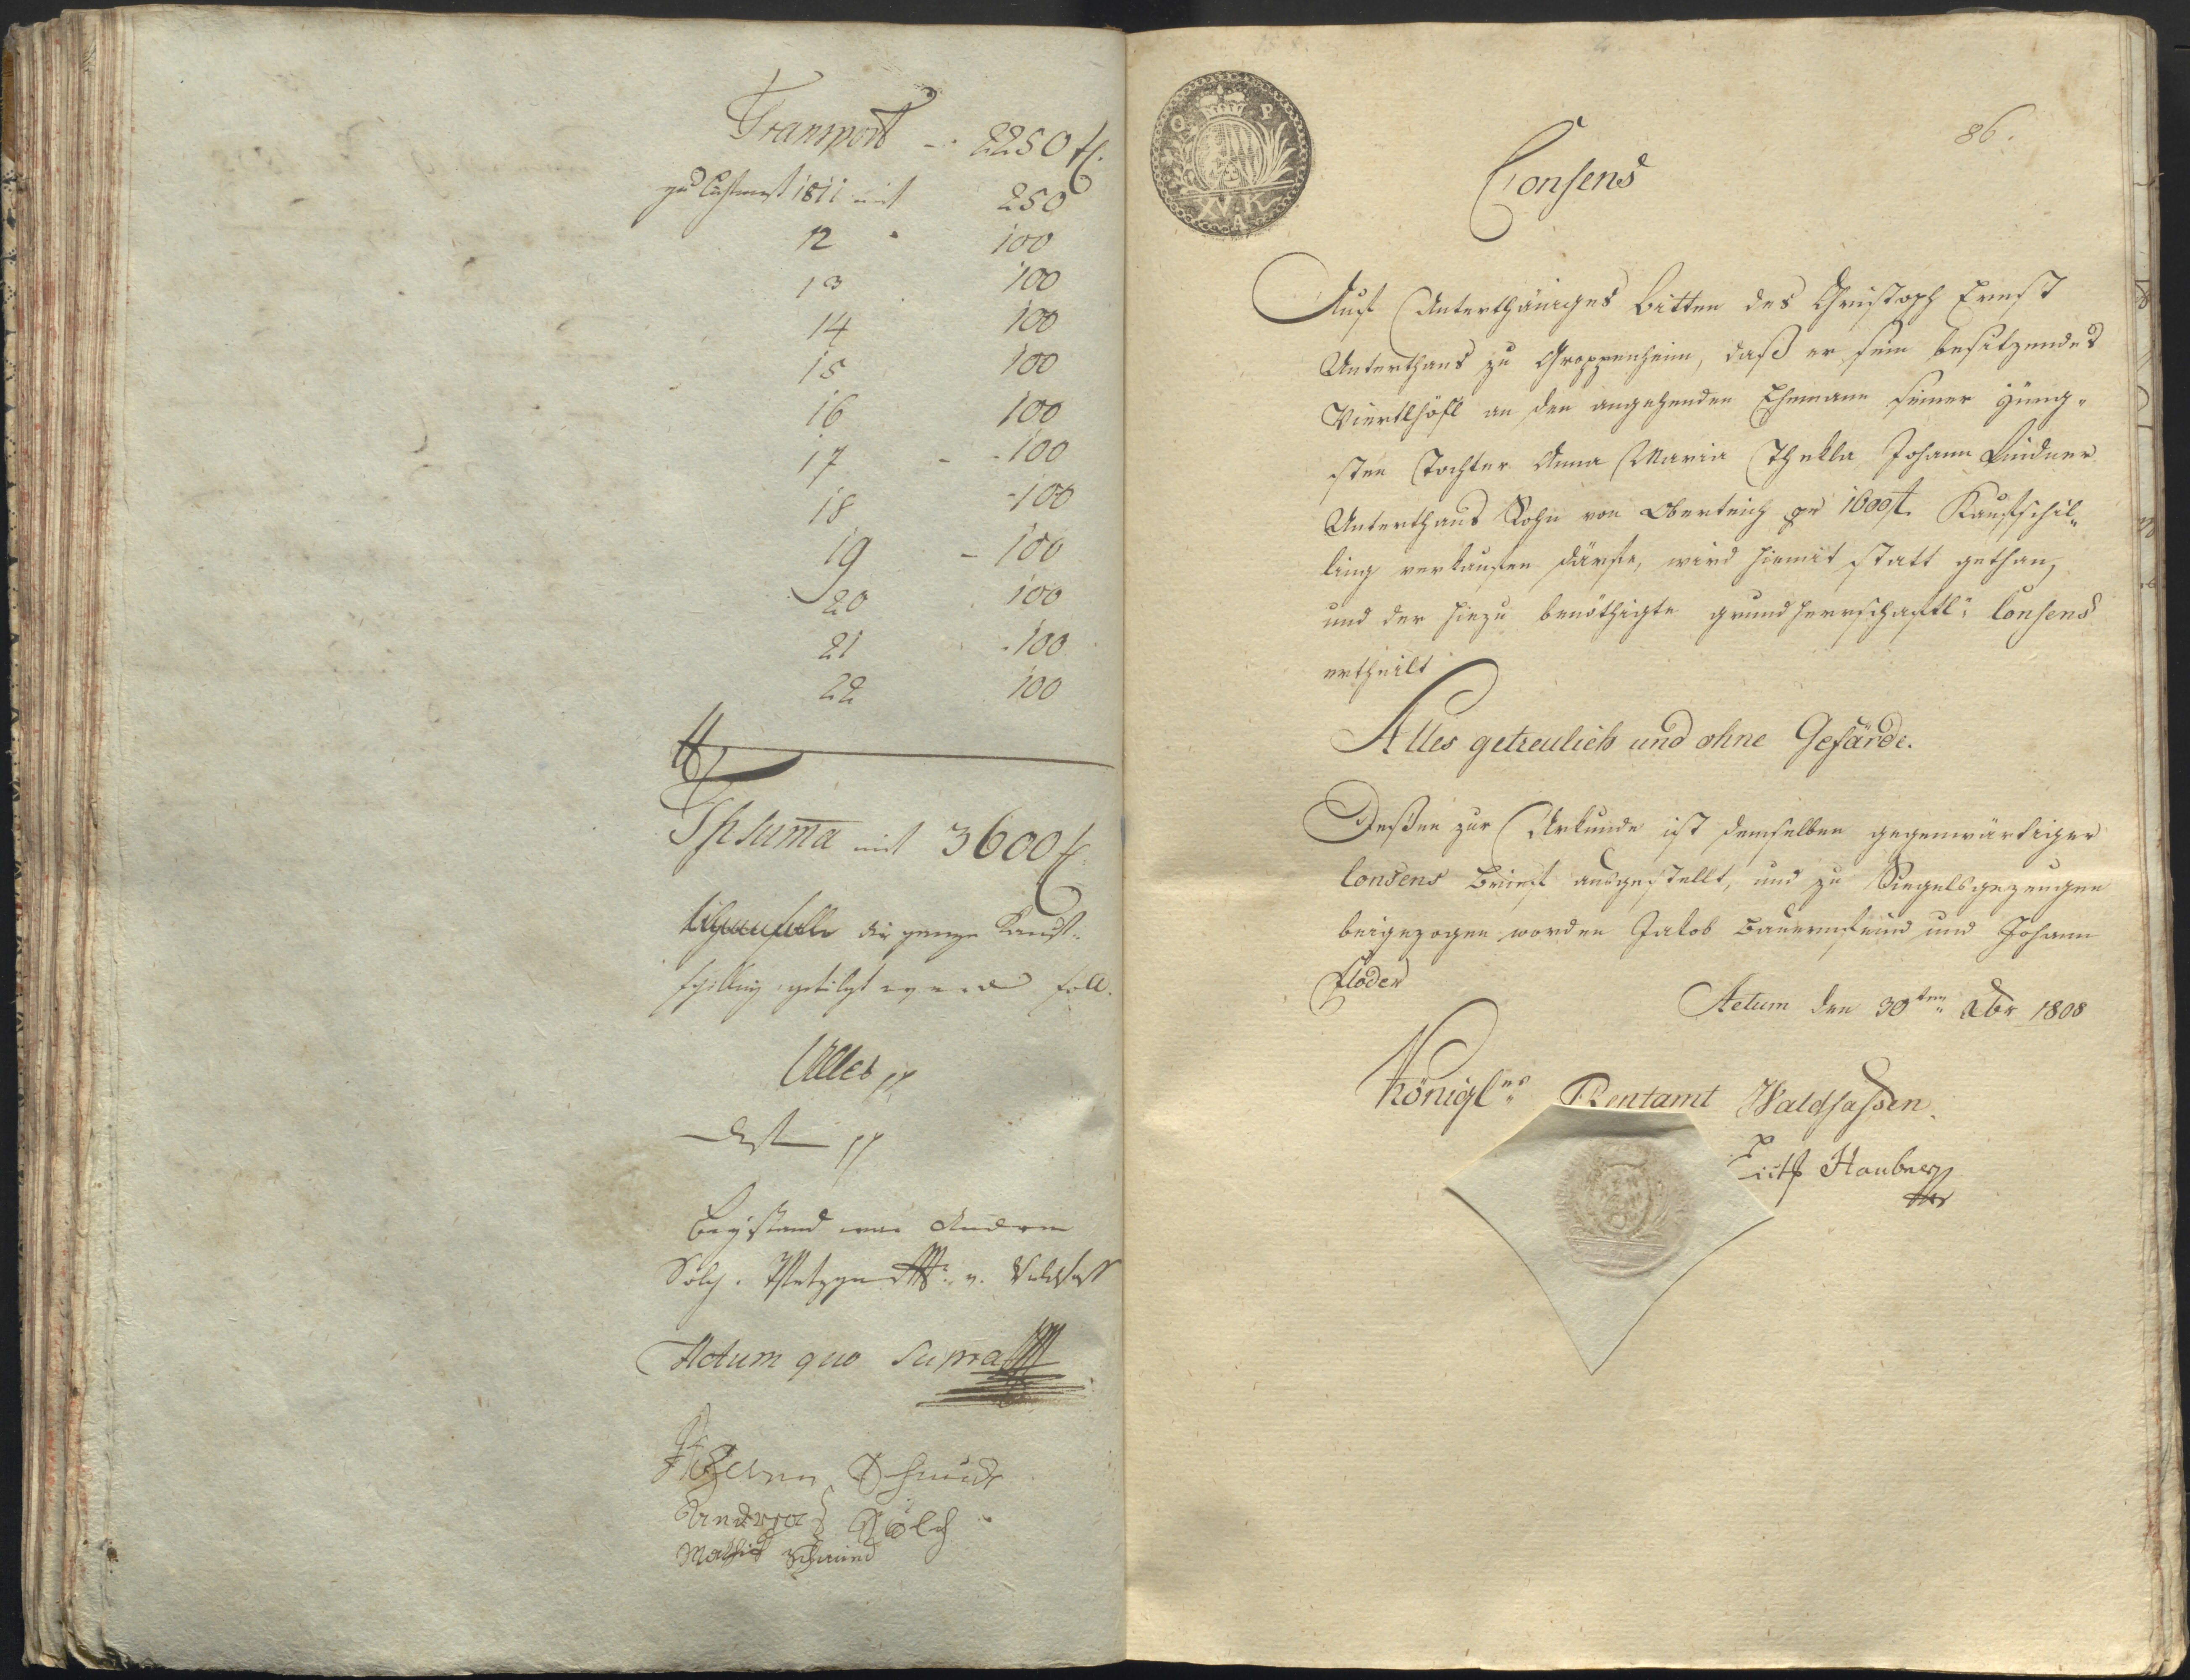 Transport - 2250 fl.
zu Lichtmeß 1811 mit 250
12 " 100
13 100
14 100
15 100
16 100
17 - - 100
18 - 100
19 - 100
20 100
21 - 100
22 100
Thsuma mit 3600 fl.
die ganze Kauf-
schilling getilgt werde soll.
Alles pp
Dess pp
Beystand war Andrea
Sölch. v. Waldsass
Actum quo supra
Schmidt
Andreas Sölch
Mathis Schmid
O P
XV K
A
86.
Consens
Auf Unterthäniges Bitten des Christoph Ernst
Unterthans zu Groppenheim, daß er sein besitzendes
Viertlhöfl an den angehenden Ehemann seiner jüng-
sten Tochter Anna Maria Thekla Johann Lindner
Unterthans Sohn von Oberteich pr 1600 fl. Kaufschil-
ling verkaufen därfe, wird hiemit statt gethan,
und der hiezu benöthigte grundherrschaftl: Consens
ertheilt
Alles getreulich und ohne Gefärde.
Deßen zur Urkunde ist demselben gegenwärtiger
Consens Brief ausgestellt, und zu Siegelsgezeugen
beigezogen worden Jakob Bauernfeind und Johann
Floder
Actum den 30ten Xbr 1808
Königl:es Rentamt Waldsaßen.
Haubner